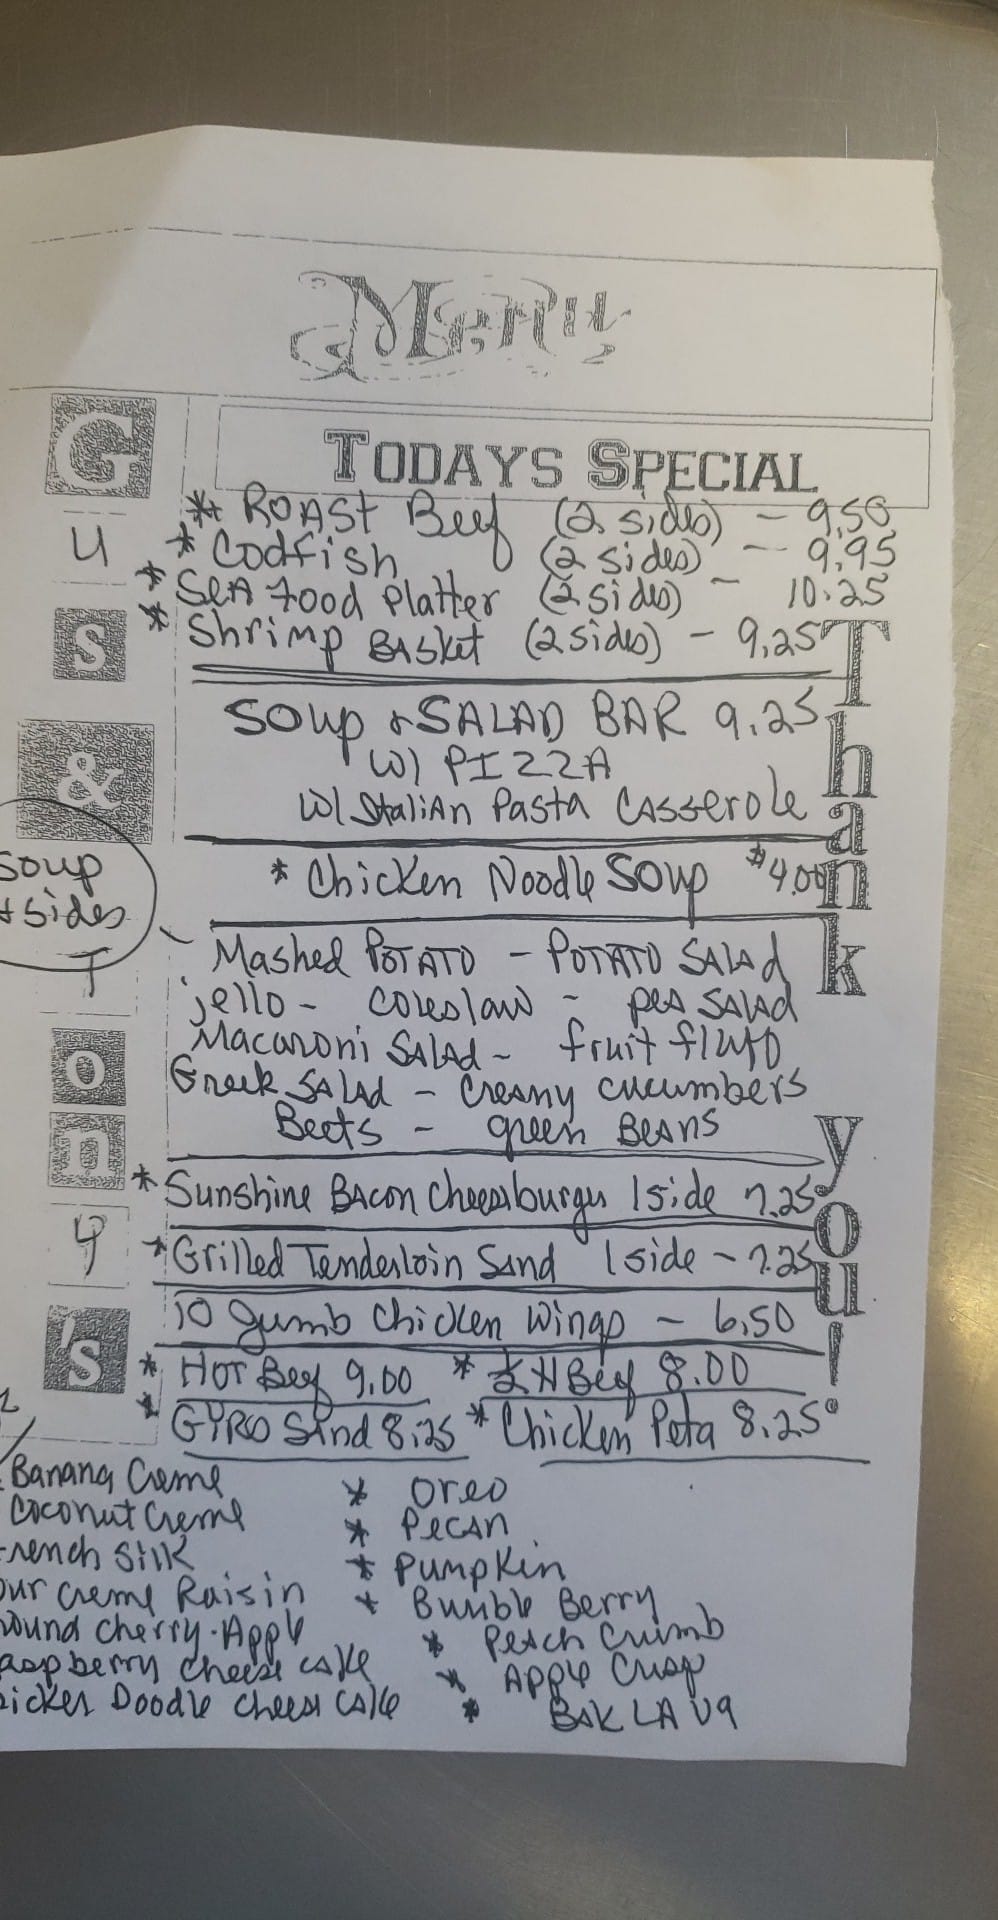 Menu
TODAYS SPECIAL
* Roast Beef (2 sides) - 9.50
* Codfish (2 sides) - 9.95
* Sea Food Platter (2 sides) - 10.25
* Shrimp Basket (2 sides) - 9.25
Soup & SALAD BAR 9.25
W/ PIZZA
W/ Italian Pasta Casserole
* Chicken Noodle Soup $4.00
Mashed Potato - Potato Salad
jello - Coleslaw - pea Salad
Macaroni Salad - fruit fluff
Greek Salad - Creamy cucumbers
Beets - green Beans
* Sunshine Bacon Cheeseburger 1 side 7.25
* Grilled Tenderloin Sand 1 side - 7.25
10 Jumb Chicken Wings - 6.50
* Hot Beef 9.00 * ½ H Beef 8.00
* GYRO Sand 8.25 * Chicken Peta 8.25
Banana Creme * Oreo
Coconut Creme * Pecan
rench Silk * Pumpkin
our Creme Raisin * Bumble Berry
ound Cherry-Apple * Peach Crumb
aspberry Cheese cake * Apple Crisp
icker Doodle Cheese cake * BAKLAVA
Gus & Tony's
Soup
& sides
Thank you!